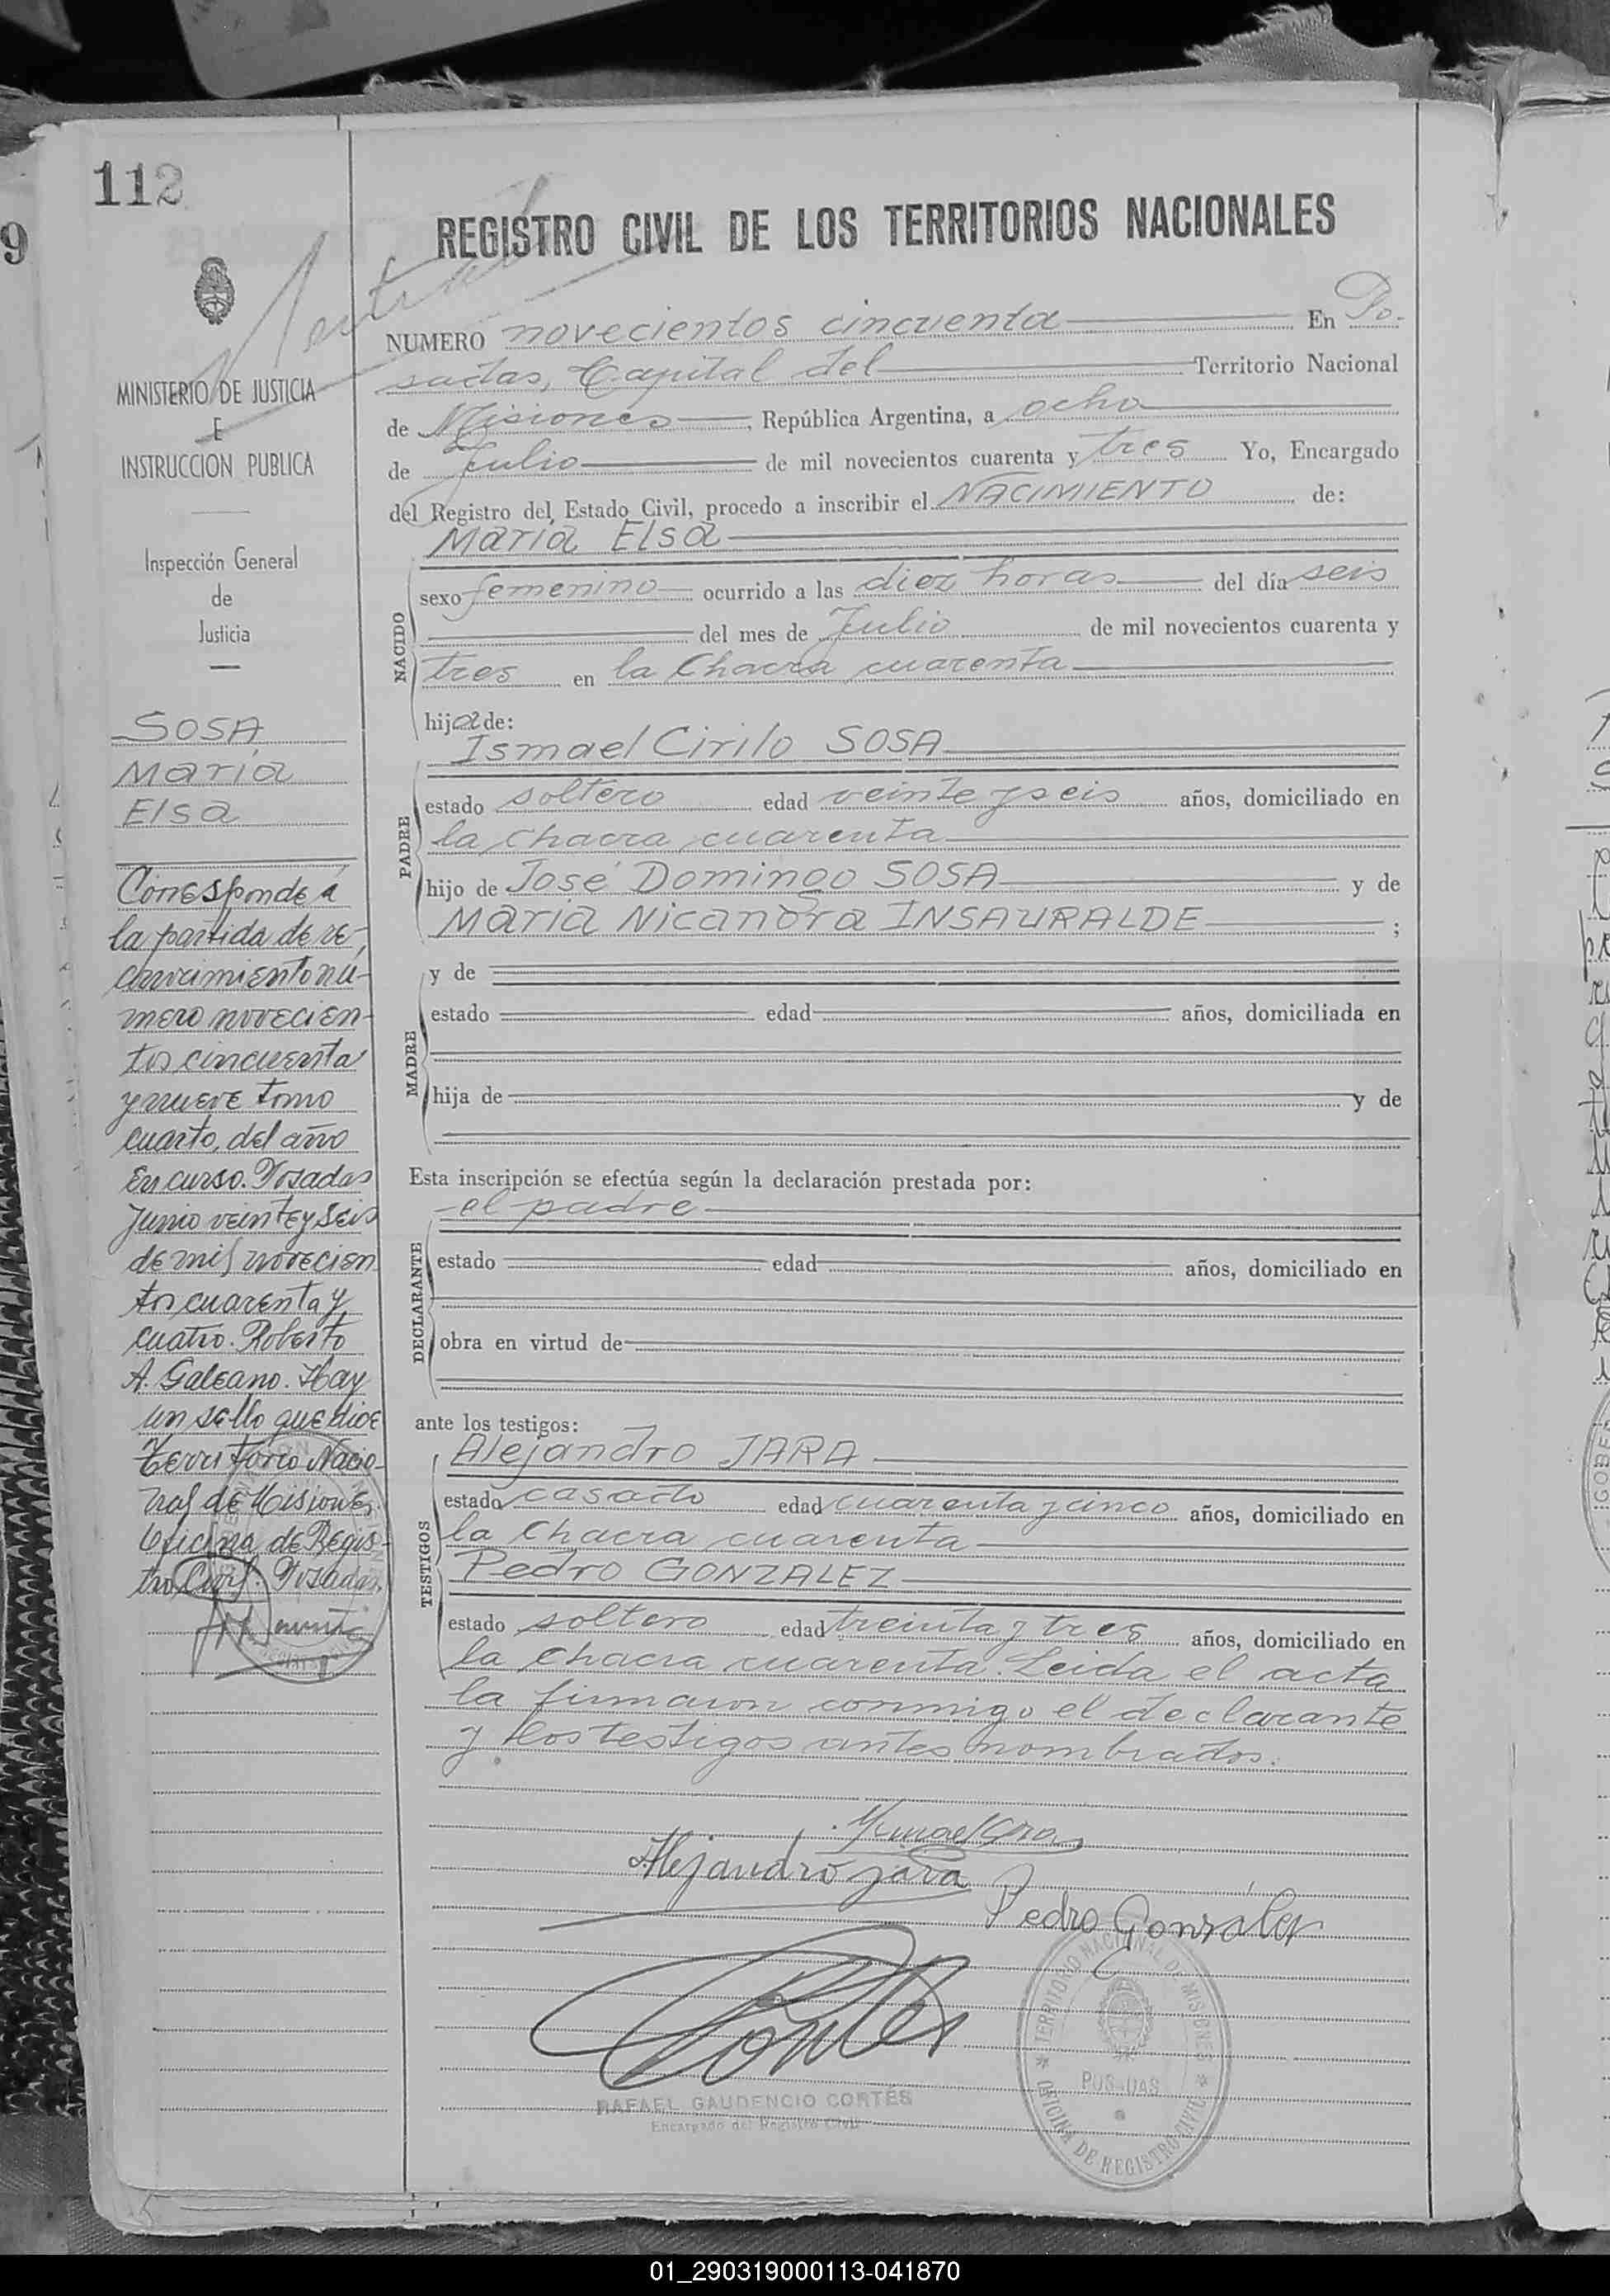 112
9
REGISTRO CIVIL DE LOS TERRITORIOS NACIONALES
MINISTERIO DE JUSTICIA
E
INSTRUCCION PUBLICA
Inspección General
de
Justicia
SOSA,
María
Elsa
Corresponde a
la partida de re-
conocimiento nú-
mero novecien-
tos cincuenta
y nueve tomo
cuarto, del año
en curso. Posadas
Junio veinte y seis
de mil novecien
tos cuarenta y
cuatro. Roberto
A. Galeano. Hay
un sello que dice
Territorio Nacio-
nal de Misiones.
Oficina de Regis-
tro Civil. Posadas.
NUMERO novecientos cincuenta En Po-
sadas, Capital del Territorio Nacional
de Misiones, República Argentina, a ocho
de Julio de mil novecientos cuarenta y tres Yo, Encargado
del Registro del Estado Civil, procedo a inscribir el NACIMIENTO de:
María Elsa
NACIDO
sexo femenino ocurrido a las diez horas del día seis
del mes de Julio de mil novecientos cuarenta y
tres en la Chacra cuarenta
hija de:
Ismael Cirilo SOSA
PADRE
estado soltero edad veinte y seis años, domiciliado en
la chacra cuarenta
hijo de José Domingo SOSA y de
María Nicanora INSAURALDE ;
MADRE
y de
estado edad años, domiciliada en
hija de y de
Esta inscripción se efectúa según la declaración prestada por:
el padre
DECLARANTE
estado edad años, domiciliado en
obra en virtud de
ante los testigos:
Alejandro JARA
TESTIGOS
estado casado edad cuarenta y cinco años, domiciliado en
la Chacra cuarenta
Pedro GONZALEZ
estado soltero edad treinta y tres años, domiciliado en
la Chacra cuarenta. Leida el acta
la firmaron conmigo el declarante
y los testigos antes nombrados.
Alejandro Jara
Pedro González
Cortés
RAFAEL GAUDENCIO CORTÉS
Encargado del Registro Civil
TERRITORIO NACIONAL DE MISIONES
POSADAS
OFICINA DE REGISTRO CIVIL
01_290319000113-041870